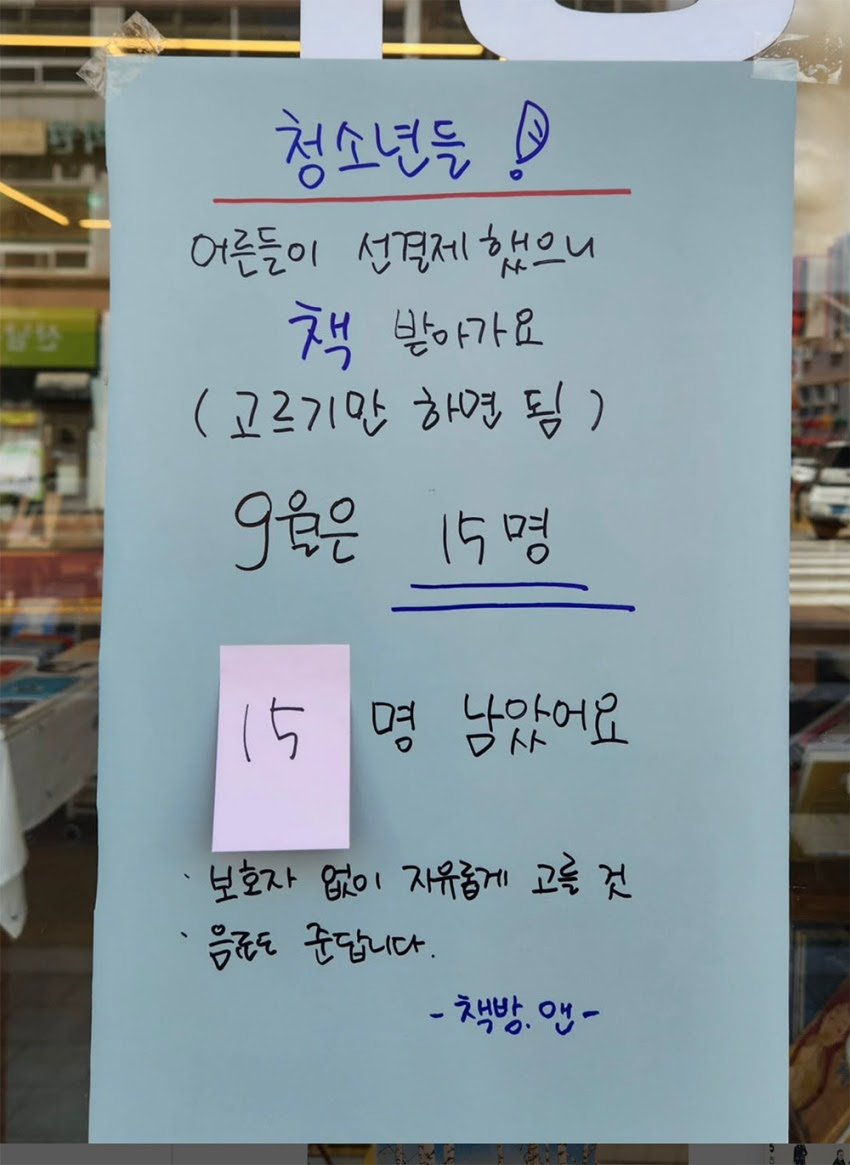 청소년들!
어른들이 선결제했으니
책 받아가요
(고르기만 하면 됨)
9월은 15명
15명 남았어요
· 보호자 없이 자유롭게 고를 것
· 음료도 준답니다.
- 책방.앤 -